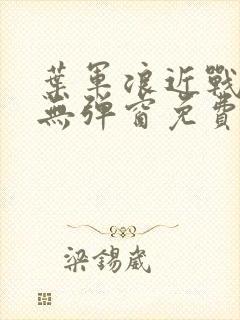 葉軍浪近戰
無彈窗免費
梁錫崴